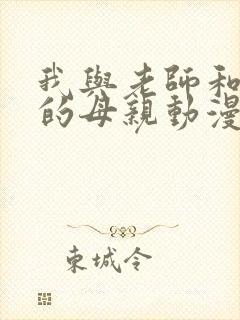 我與老師和
的母親動漫
東城令